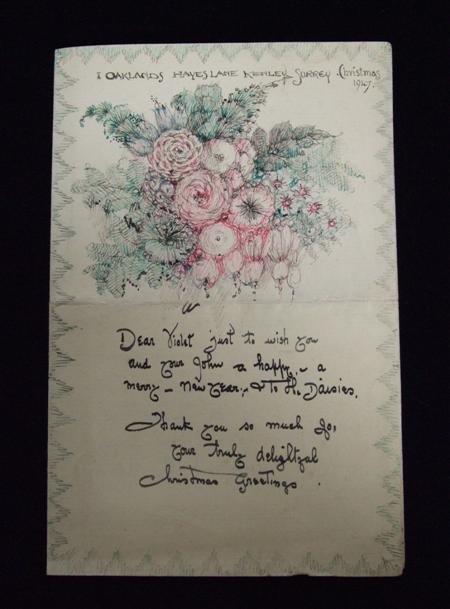 1 OAKLANDS HAYES LANE KENLEY SURREY. Christmas
1947.
Dear Violet just to wish you
and your John a happy – a
merry – New Year, & To H. Daisies.
Thank you so much for
your truly delightful
Christmas Greetings.